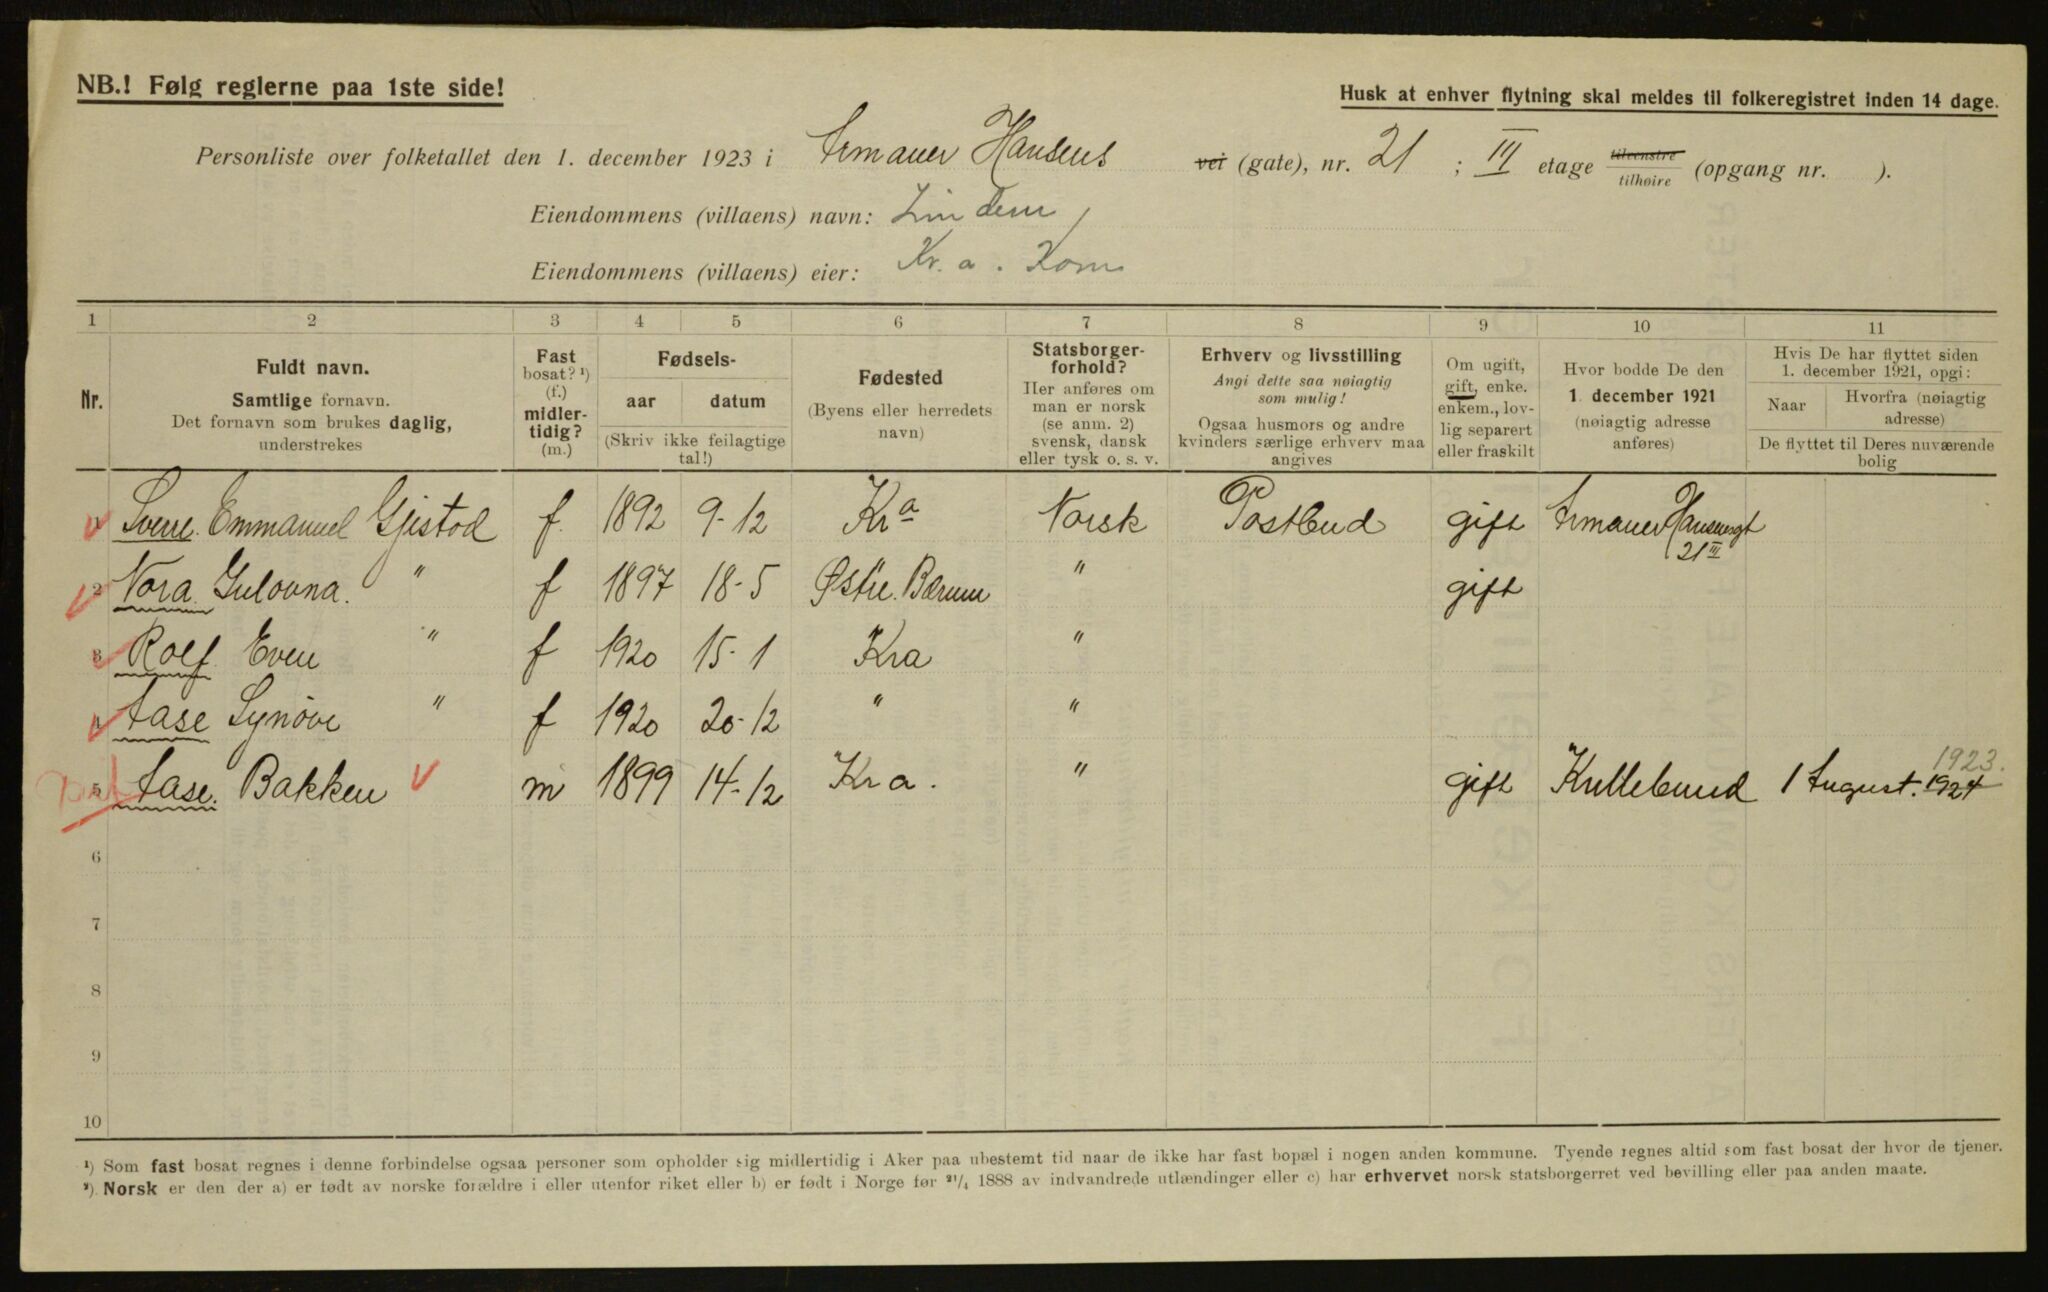 NB.! Følg reglerne paa 1ste side!
Husk at enhver flytning skal meldes til folkeregistret inden 14 dage.
Personliste over folketallet den 1. december 1923 i Armauer Hansens vei (gate), nr. 21 ; III etage tilvenstre tilhøire (opgang nr. ).
Eiendommens (villaens) navn: Lindern
Eiendommens (villaens) eier: Kr.a. Kom
1 2 3 4 5 6 7 8 9 10 11
Nr.
Fuldt navn.
Samtlige fornavn.
Det fornavn som brukes daglig,
understrekes
Fast
bosat? ¹)
(f.)
midler-
tidig?
(m.)
Fødsels-
aar datum
(Skriv ikke feilagtige
tal!)
Fødested
(Byens eller herredets
navn)
Statsborger-
forhold?
Her anføres om
man er norsk
(se anm. 2)
svensk, dansk
eller tysk o. s. v.
Erhverv og livsstilling
Angi dette saa nøiagtig
som mulig!
Ogsaa husmors og andre
kvinders særlige erhverv maa
angives
Om ugift,
gift, enke.
enkem., lov-
lig separert
eller fraskilt
Hvor bodde De den
1. december 1921
(nøiagtig adresse
anføres)
Hvis De har flyttet siden
1. december 1921, opgi:
Naar
Hvorfra (nøiagtig
adresse)
De flyttet til Deres nuværende
bolig
1 Sverre Emmanuel Gjestod f. 1892 9-12 Kra Norsk Postbud gift Armauer Hansensgt
21 III
2 Nora Gulovna. " f 1897 18-5 Østre Bærum " gift
3 Rolf Even " f 1920 15-1 Kra "
4 Aase Synöve " f 1920 20-12 " "
1923.
5 Aase Bakken m 1899 14-12 Kra. " gift Kullebund 1 August. 1924
6
7
8
9
10
¹) Som fast bosat regnes i denne forbindelse ogsaa personer som opholder sig midlertidig i Aker paa ubestemt tid naar de ikke har fast bopæl i nogen anden kommune. Tyende regnes altid som fast bosat der hvor de tjener.
²). Norsk er den der a) er født av norske forældre i eller utenfor riket eller b) er født i Norge før ²¹/₄ 1888 av indvandrede utlændinger eller c) har erhvervet norsk statsborgerret ved bevilling eller paa anden maate.